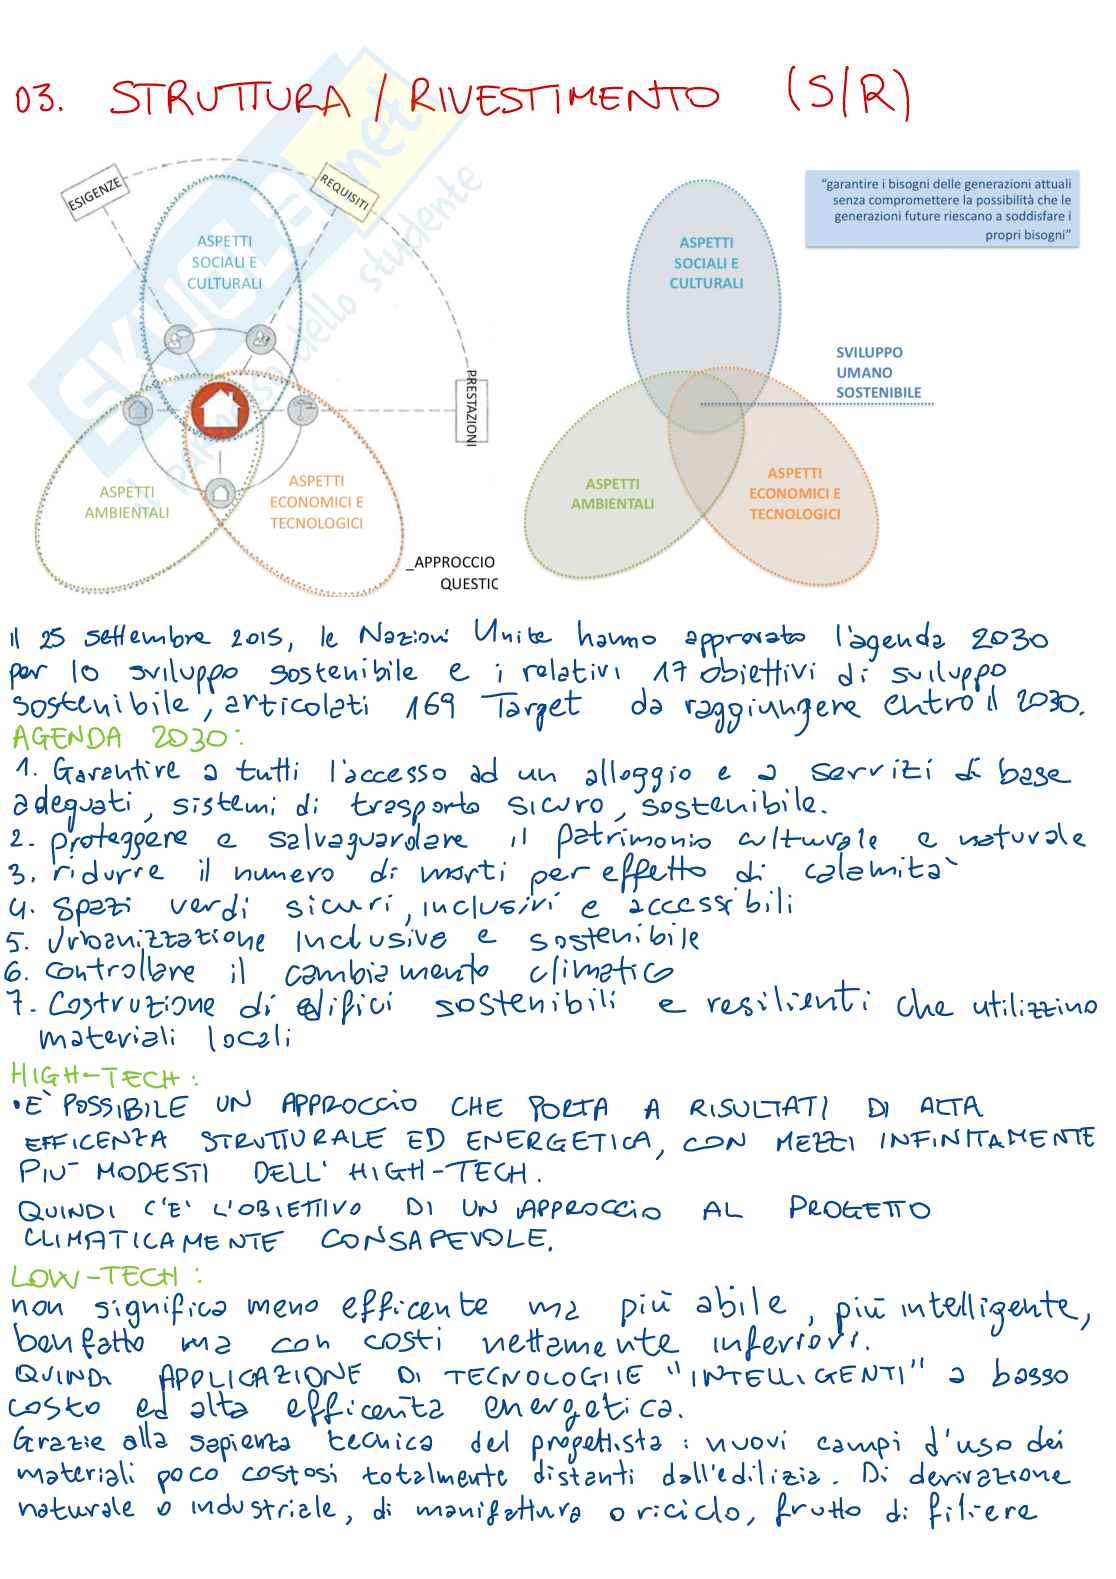 03. STRUTTURA / RIVESTIMENTO (S/R)
ESIGENZE
REQUISITI
PRESTAZIONI
ASPETTI
SOCIALI E
CULTURALI
ASPETTI
AMBIENTALI
ASPETTI
ECONOMICI E
TECNOLOGICI
_APPROCCIO
QUESTIC
SKUOLA.net
dello studente
ASPETTI
SOCIALI E
CULTURALI
ASPETTI
AMBIENTALI
ASPETTI
ECONOMICI E
TECNOLOGICI
SVILUPPO
UMANO
SOSTENIBILE
“garantire i bisogni delle generazioni attuali
senza compromettere la possibilità che le
generazioni future riescano a soddisfare i
propri bisogni”
Il 25 settembre 2015, le Nazioni Unite hanno approvato l'agenda 2030
per lo sviluppo sostenibile e i relativi 17 obiettivi di sviluppo
sostenibile, articolati 169 Target da raggiungere entro il 2030.
AGENDA 2030:
1. Garantire a tutti l'accesso ad un alloggio e a servizi di base
adeguati, sistemi di trasporto sicuro, sostenibile.
2. proteggere e salvaguardare il patrimonio culturale e naturale
3. ridurre il numero di morti per effetto di calamità
4. Spazi verdi sicuri, inclusivi e accessibili
5. Urbanizzazione inclusiva e sostenibile
6. Controllare il cambiamento climatico
7. Costruzione di edifici sostenibili e resilienti che utilizzino
materiali locali
HIGH-TECH:
• E' POSSIBILE UN APPROCCIO CHE PORTA A RISULTATI DI ALTA
EFFICENZA STRUTTURALE ED ENERGETICA, CON MEZZI INFINITAMENTE
PIU' MODESTI DELL' HIGH-TECH.
QUINDI C'E' L'OBIETTIVO DI UN APPROCCIO AL PROGETTO
CLIMATICAMENTE CONSAPEVOLE.
LOW-TECH:
non significa meno efficente ma più abile, più intelligente,
ben fatto ma con costi nettamente inferiori.
QUINDI APPLICAZIONE DI TECNOLOGIIE "INTELLIGENTI" a basso
costo ed alta efficenza energetica.
Grazie alla sapienza tecnica del progettista: nuovi campi d'uso dei
materiali poco costosi totalmente distanti dall'edilizia. Di derivazione
naturale o industriale, di manifattura o riciclo, frutto di filiere